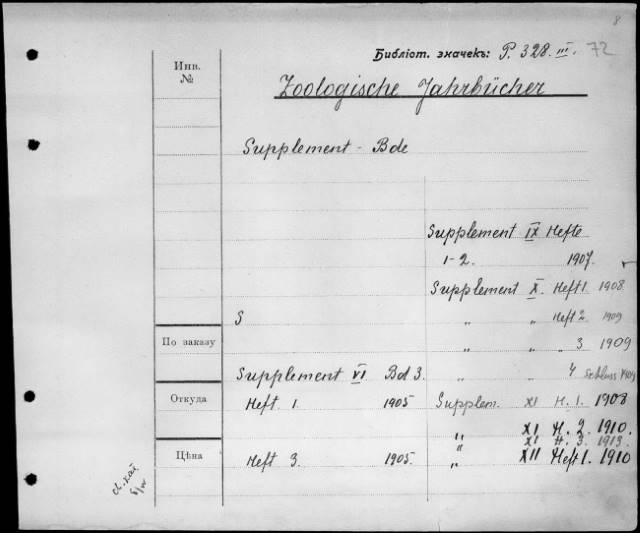 8
Библіот. значекъ: P. 328. III. 72
Инв.
№
Zoologische Jahrbücher
Supplement - Bde
Supplement IX Hefte
1-2. 1907.
Supplement X. Heft 1 1908.
S „ „ Heft 2 1909
По заказу
„ „ 3 1909
Supplement VI Bd 3. „ „ 4 Schluss 1909
Откуда
Heft 1. 1905 Supplem. XI H. 1. 1908
„ XI H. 2. 1910.
„ XI H. 3. 1913.
Цѣна
Heft 3. 1905. „ XII Heft 1. 1910